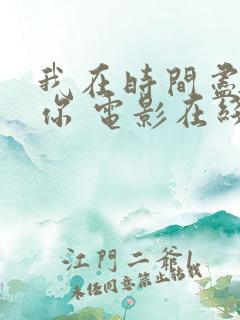 我在時間盡
你 電影在線
江門二爺l
未經同意禁止轉載